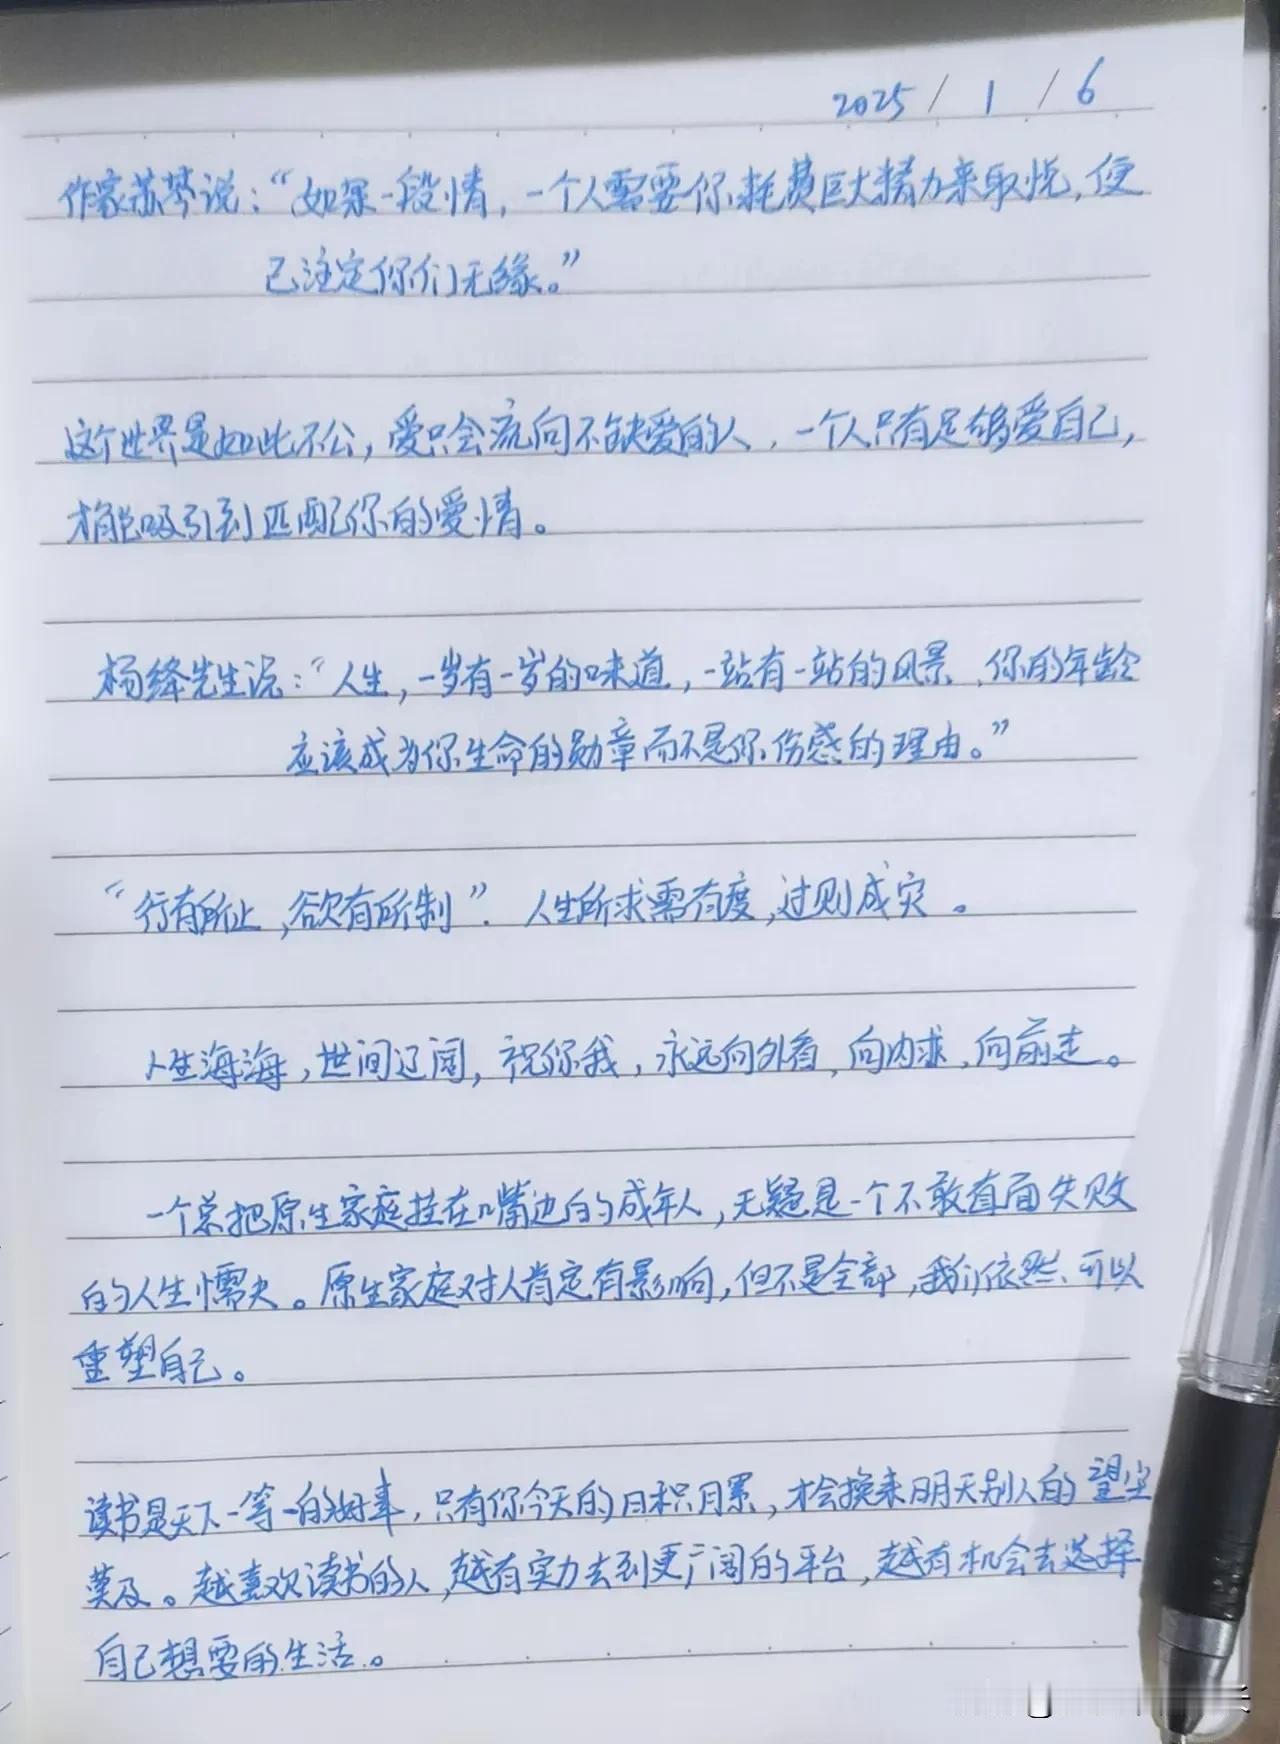 2025 / 1 / 6
作家苏芩说：“如果一段情，一个人需要你耗费巨大精力来取悦，便
已注定你们无缘。”
这个世界是如此不公，爱只会流向不缺爱的人，一个人只有足够爱自己，
才能吸引到匹配你的爱情。
杨绛先生说：“人生，一岁有一岁的味道，一站有一站的风景，你的年龄
应该成为你生命的勋章而不是你伤感的理由。”
“行有所止，欲有所制”．人生所求需有度，过则成灾。
人生海海，世间辽阔，祝你我，永远向外看，向内求，向前走。
一个总把原生家庭挂在嘴边的成年人，无疑是一个不敢直面失败
的人生懦夫。原生家庭对人肯定有影响，但不是全部，我们依然可以
重塑自己。
读书是天下一等一的好事，只有你今天的日积月累，才会换来明天别人的望尘
莫及。越喜欢读书的人，越有实力去到更广阔的平台，越有机会去选择
自己想要的生活。